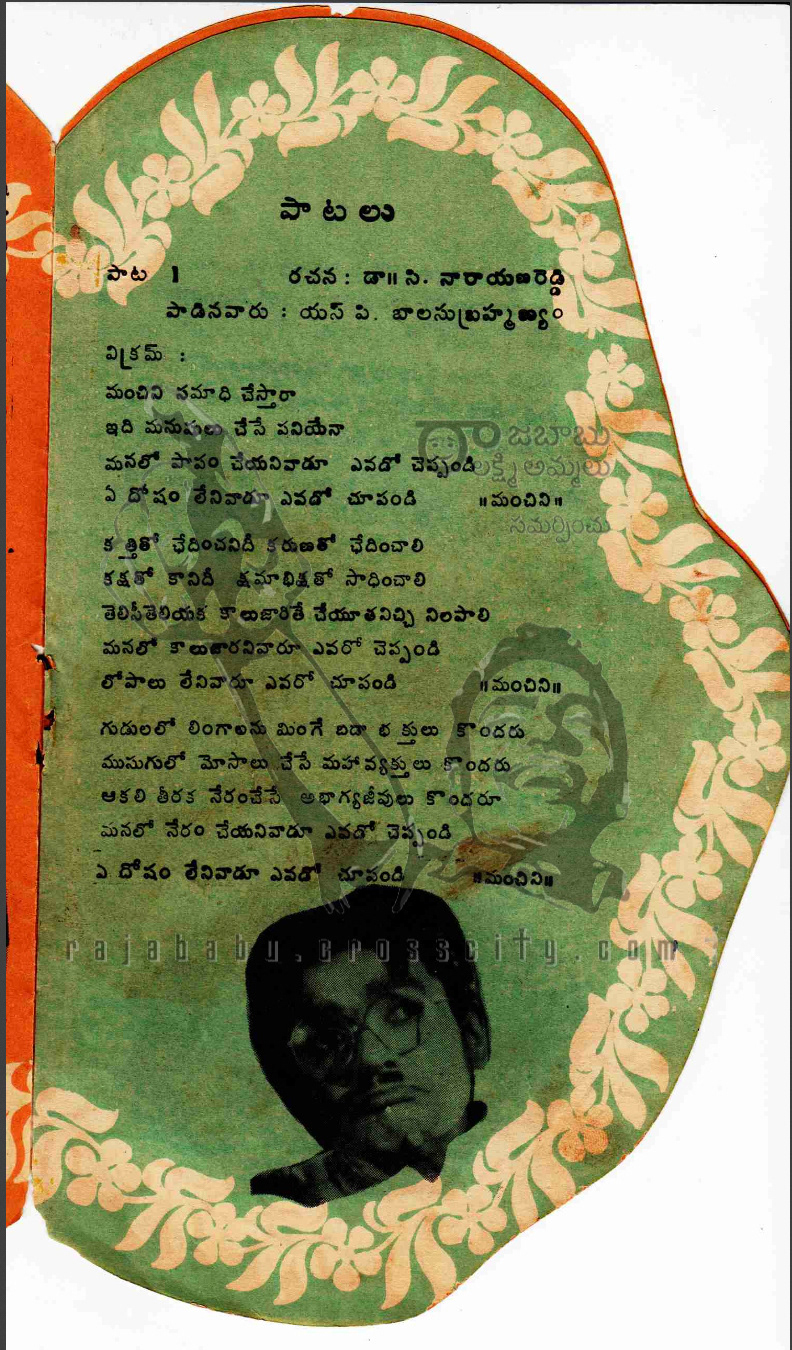 పాటలు
పాట 1 రచన : డా॥ సి. నారాయణరెడ్డి
పాడినవారు : యస్ పి. బాలసుబ్రహ్మణ్యం
విక్రమ్ :
మంచిని సమాధి చేస్తారా
ఇది మనుషులు చేసే పనియేనా
మనలో పాపం చేయనివాడూ ఎవడో చెప్పండి
ఏ దోషం లేనివాడూ ఎవడో చూపండి ॥మంచిని॥
కత్తితో ఛేదించనిదీ కరుణతో ఛేదించాలి
కక్షతో కానిదీ క్షమాభిక్షతో సాధించాలి
తెలిసీతెలియక కాలుజారితే చేయూతనిచ్చి నిలపాలి
మనలో కాలుజారనివారూ ఎవరో చెప్పండి
లోపాలు లేనివారూ ఎవరో చూపండి ॥మంచిని॥
గుడులలో లింగాలను మింగే బడా భక్తులు కొందరు
ముసుగులో మోసాలు చేసే మహావ్యక్తులు కొందరు
ఆకలి తీరక నేరంచేసే అభాగ్యజీవులు కొందరూ
మనలో నేరం చేయనివాడూ ఎవడో చెప్పండి
ఏ దోషం లేనివాడూ ఎవడో చూపండి ॥మంచిని॥
రాజబాబు
లక్ష్మి అమ్మలు
సమర్పించు
rajababu.crosscity.com